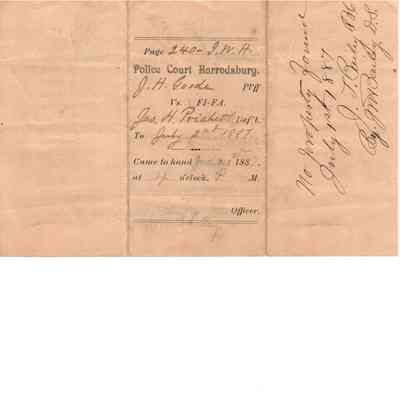 Page 240- J.W.H.
Police Court Harrodsburg.
J. H. Pl'ff
Vs. FI-FA.
Jas. H. Def't
To July 1887.
Came to hand 188
at o'clock, P M.
Officer.
No property found
July 1st 1887
J. T. Bailey
By Bailey D.S.